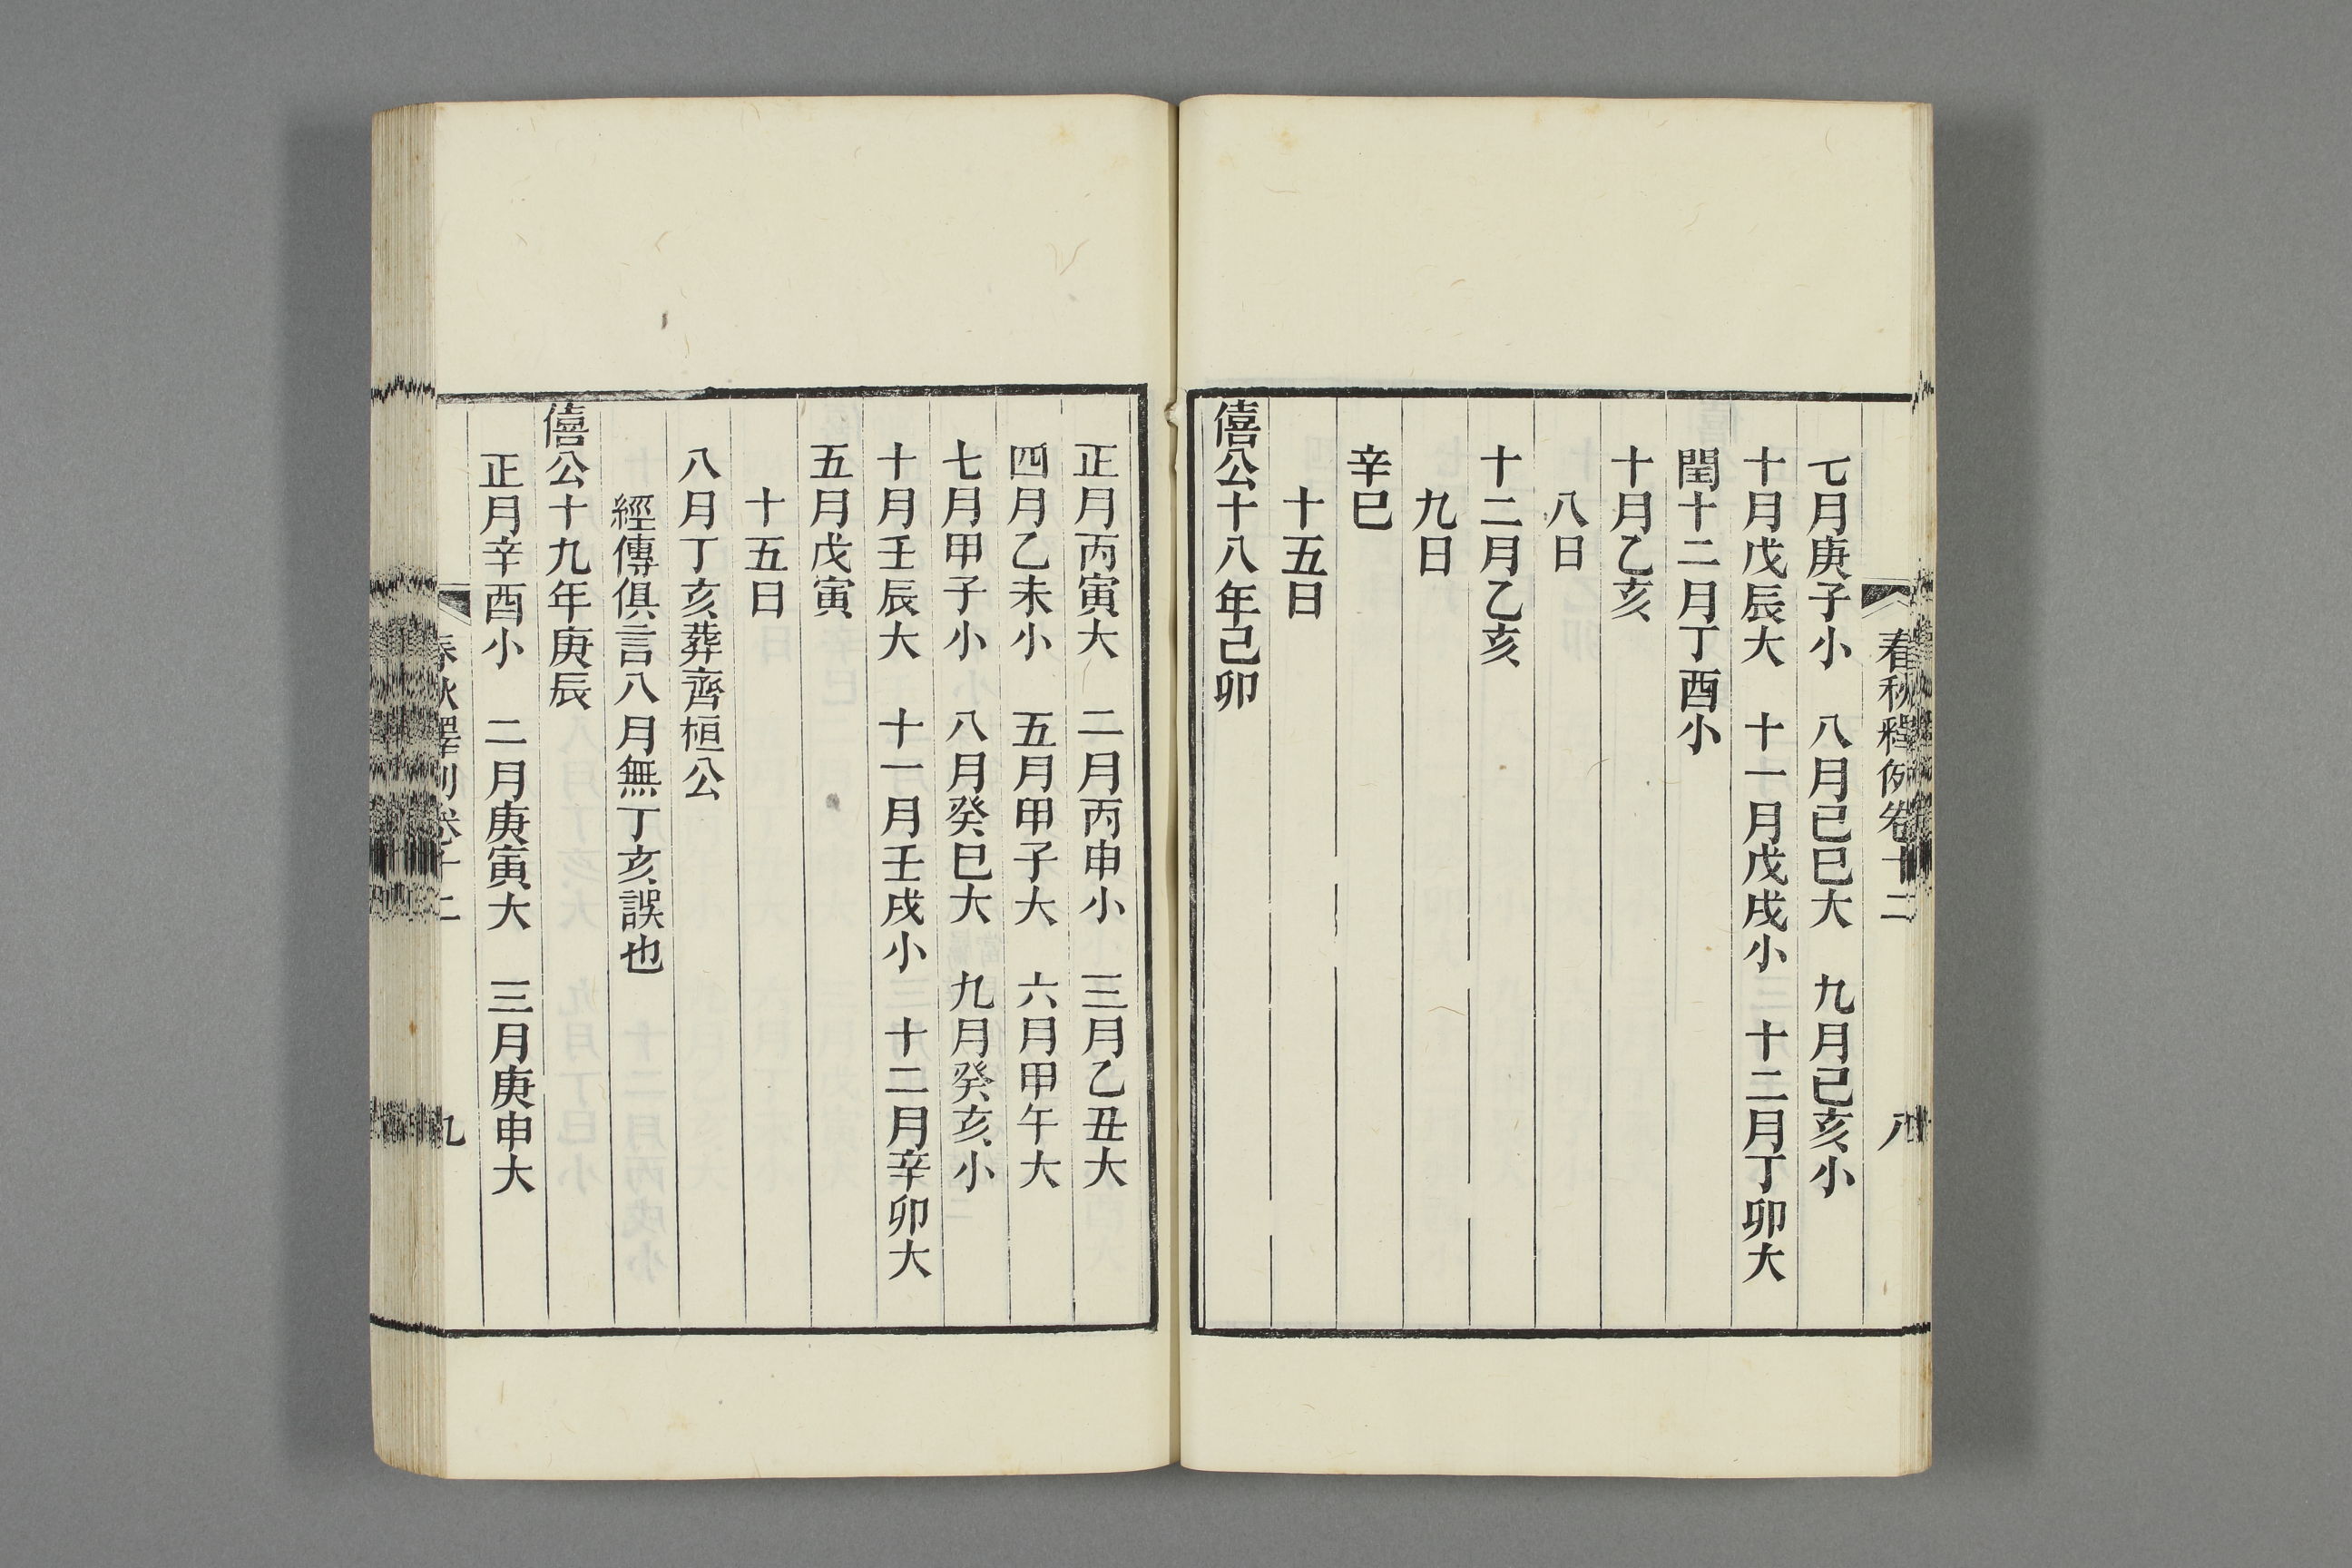 春秋釋例卷十二
八
七月庚子小　八月己巳大　九月己亥小
十月戊辰大　十一月戊戌小　十二月丁卯大
閏十二月丁酉小
十月乙亥
八日
十二月乙亥
九日
辛巳
十五日
僖公十八年己卯
正月丙寅大　二月丙申小　三月乙丑大
四月乙未小　五月甲子大　六月甲午大
七月甲子小　八月癸巳大　九月癸亥小
十月壬辰大　十一月壬戌小　十二月辛卯大
五月戊寅
十五日
八月丁亥葬齊桓公
經傳俱言八月無丁亥誤也
僖公十九年庚辰
正月辛酉小　二月庚寅大　三月庚申大
春秋釋例卷十二
九